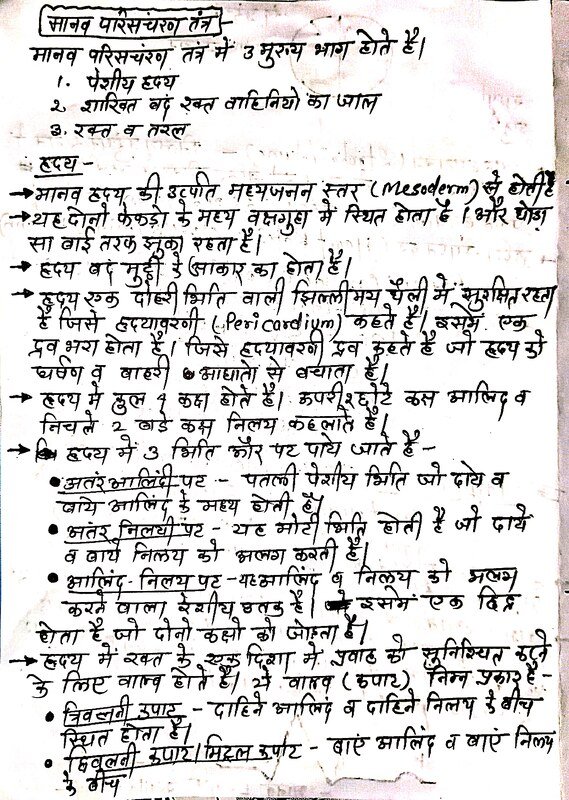 मानव परिसंचरण तंत्र -
मानव परिसंचरण तंत्र में 3 मुख्य भाग होते है।
1. पेशीय हृदय
2. शाखित बंद रक्त वाहिनियो का जाल
3. रक्त व तरल
हृदय -
→ मानव हृदय की उत्पति मध्यजनन स्तर (Mesoderm) से होती है
→ यह दोनो फेफड़ो के मध्य वक्षगुहा में स्थित होता है। और थोडा
सा बाई तरफ झुका रहता है।
→ हृदय बंद मुट्ठी के आकार का होता है।
→ हृदय एक दोहरी भिति वाली झिल्लीमय थैली में सुरक्षित रहता
है जिसे हृदयावरणी (Pericardium) कहते है। इसमें एक
द्रव भरा होता है। जिसे हृदयावरणी द्रव कहते है जो हृदय को
घर्षण व बाहरी आघातो से बचाता है।
→ हृदय में कुल 4 कक्ष होते है। ऊपरी 2 छोटे कक्ष आलिंद व
निचले 2 बडे कक्ष निलय कहलाते है।
→ हृदय में 3 भिति और पट पाये जाते है -
• अतंर आलिंदी पट - पतली पेशीय भिति जो दाये व
बाये आलिंद के मध्य होती है।
• अतंर निलयी पट - यह मोटी भिति होती है जो दाये
व बाये निलय को अलग करती है।
• आलिंद-निलय पट - यह आलिंद व निलय को अलग
करने वाला रेशीय ऊतक है। इसमें एक छिद्र
होता है जो दोनो कक्षो को जोडता है।
→ हृदय में रक्त के एक दिशा में प्रवाह को सुनिश्चित करने
के लिए वाल्व होते है। ये वाल्व (कपाट) निम्न प्रकार है -
• त्रिवलनी कपाट - दाहिने आलिंद व दाहिने निलय के बीच
स्थित होता है।
• द्विवलनी कपाट/मिट्रल कपाट - बाएं आलिंद व बाएं निलय
के बीच